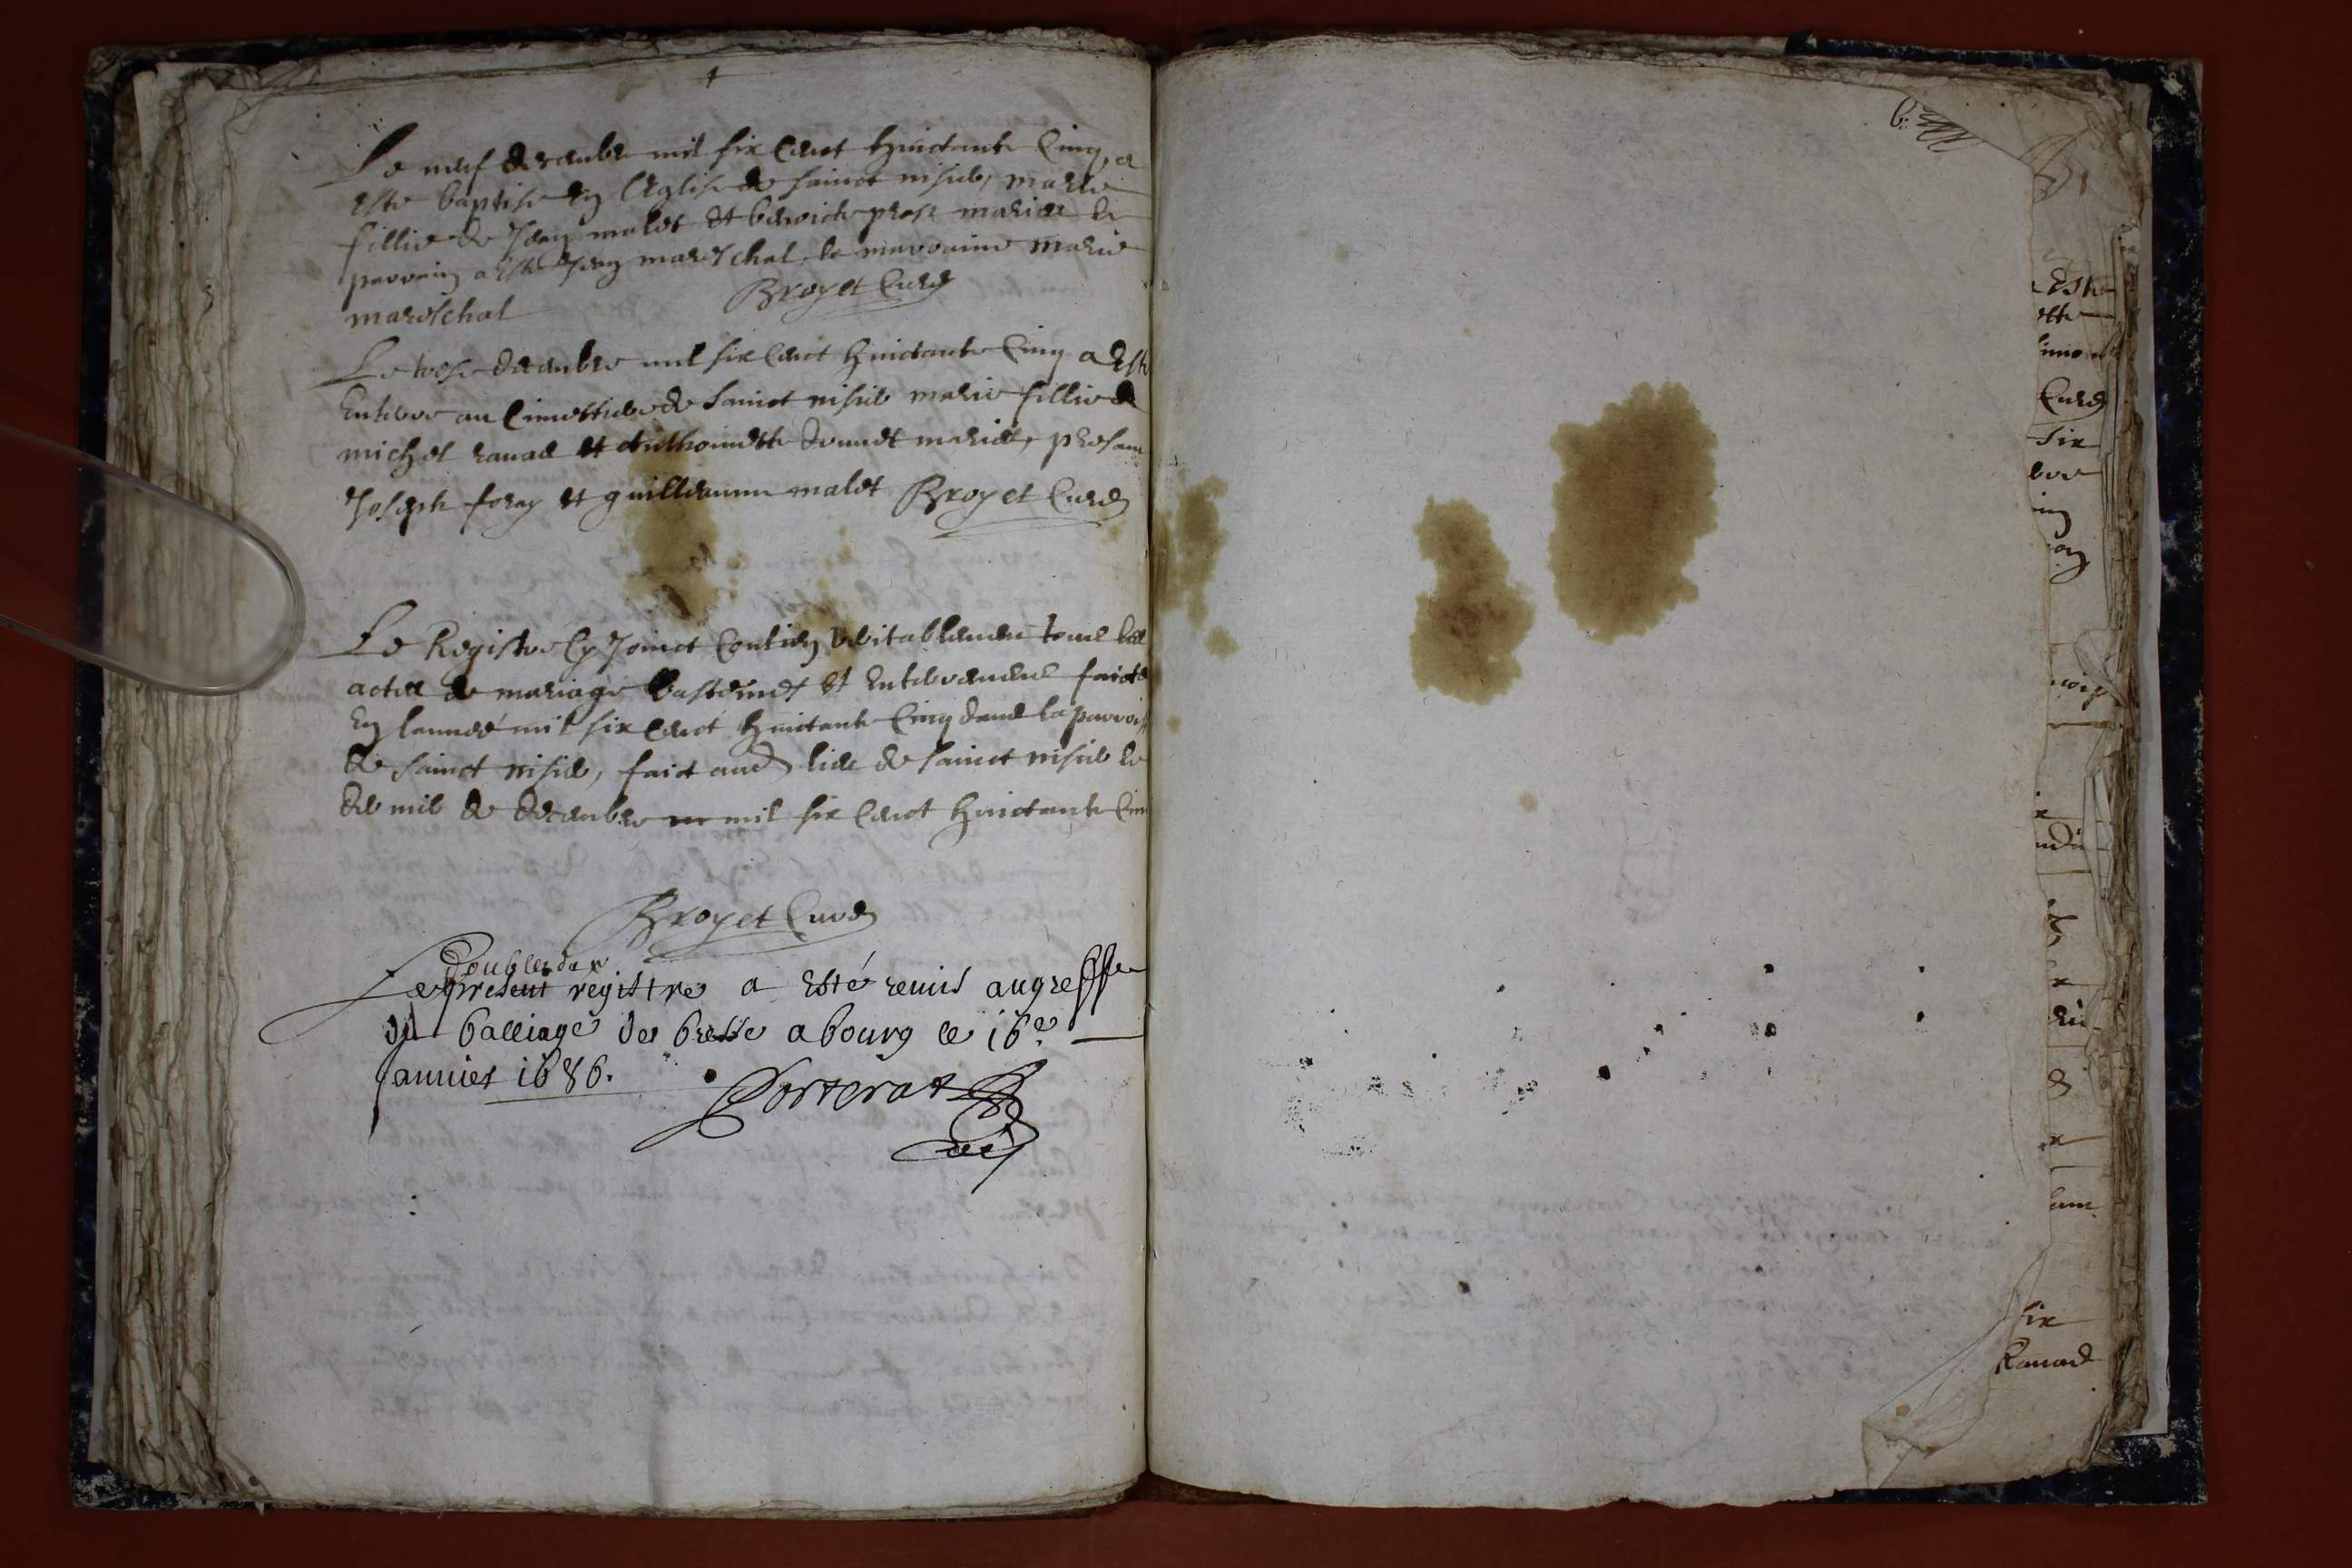 Le neuf decembre mil six cenct huictante cinq, a
este baptise en l'Eglise de sainct nisier, marie
fillie de Jean malet et benoicte pross mariez le
parrain a este Jean mareschal, la marraine marie
mareschal Broyet Curé
Le tresе decembre mil six cenct huictante cinq a este
enterre au cimettiere de sainct nisier marie fillie de
michel rauas et Anthoinette mariez, presans
Joseph foray et guilleaume malet Broyet Curé
Le Registre cy Joinct contien veritablement tous les
actes de mariage bastemes et enterremens faicts
En lannée mil six cenct huictante cinq dans la parroisse
de sainct nisier, faict aud lieu de sainct nisier le
de decembre mil six cenct huictante cin
Broyet Curé
double du
Le present registre a esté remis au greffe
du balliage de bresse a bourg le 16e
Janvier 1686.
Porterat
b:
a este
ette
Curé
six
six
Rauas